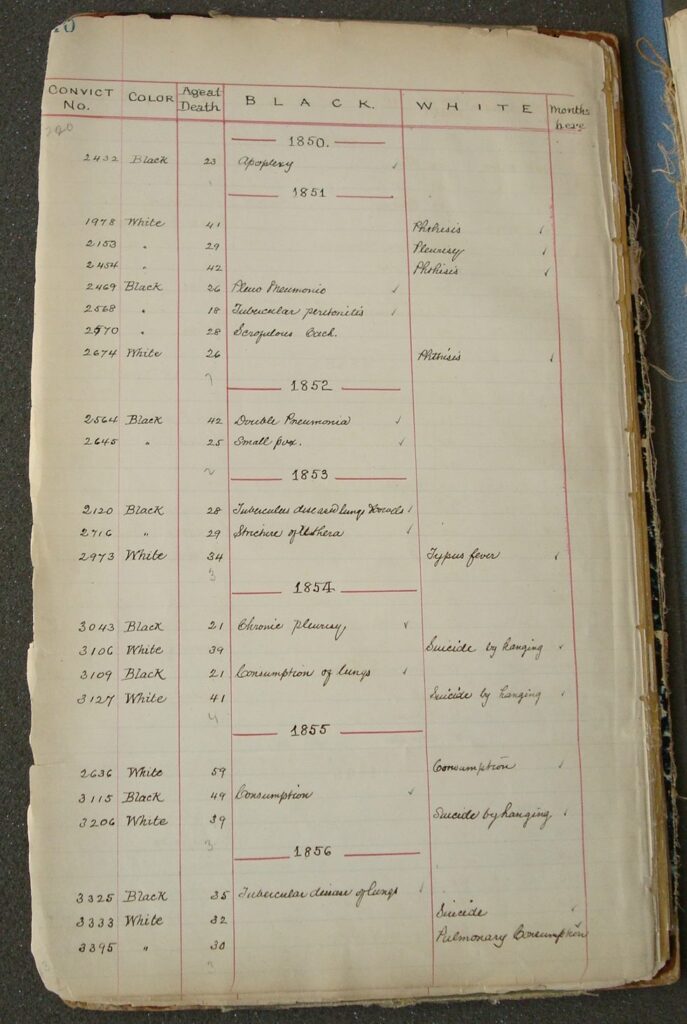 40
CONVICT No. COLOR Age at Death BLACK. WHITE Months here
220
1850.
2432 Black 23 Apoplexy ✓
1
1851
1978 White 41 Phthisis ✓
2153 " 29 Pleurisy ✓
2454 " 42 Phthisis ✓
2469 Black 26 Pleuo Pneumonia ✓
2568 " 18 Tubercular peritonitis ✓
2570 " 28 Scrofulous Cach.
2674 White 26 Phthisis ✓
7
1852
2564 Black 42 Double Pneumonia ✓
2645 " 25 Small pox. ✓
2
1853
2120 Black 28 Tuberculus disease of lungs & bowels ✓
2716 " 29 Stricture of Urethera ✓
2973 White 34 Typus fever ✓
3
1854
3043 Black 21 Chronic pleurisy ✓
3106 White 39 Suicide by hanging ✓
3109 Black 21 Consumption of lungs ✓
3127 White 41 Suicide by hanging ✓
4
1855
2636 White 59 Consumption ✓
3115 Black 49 Consumption ✓
3206 White 39 Suicide by hanging ✓
3
1856
3325 Black 35 Tubercular disease of lungs ✓
3333 White 32 Suicide ✓
3395 " 30 Pulmonary Consumption ✓
3